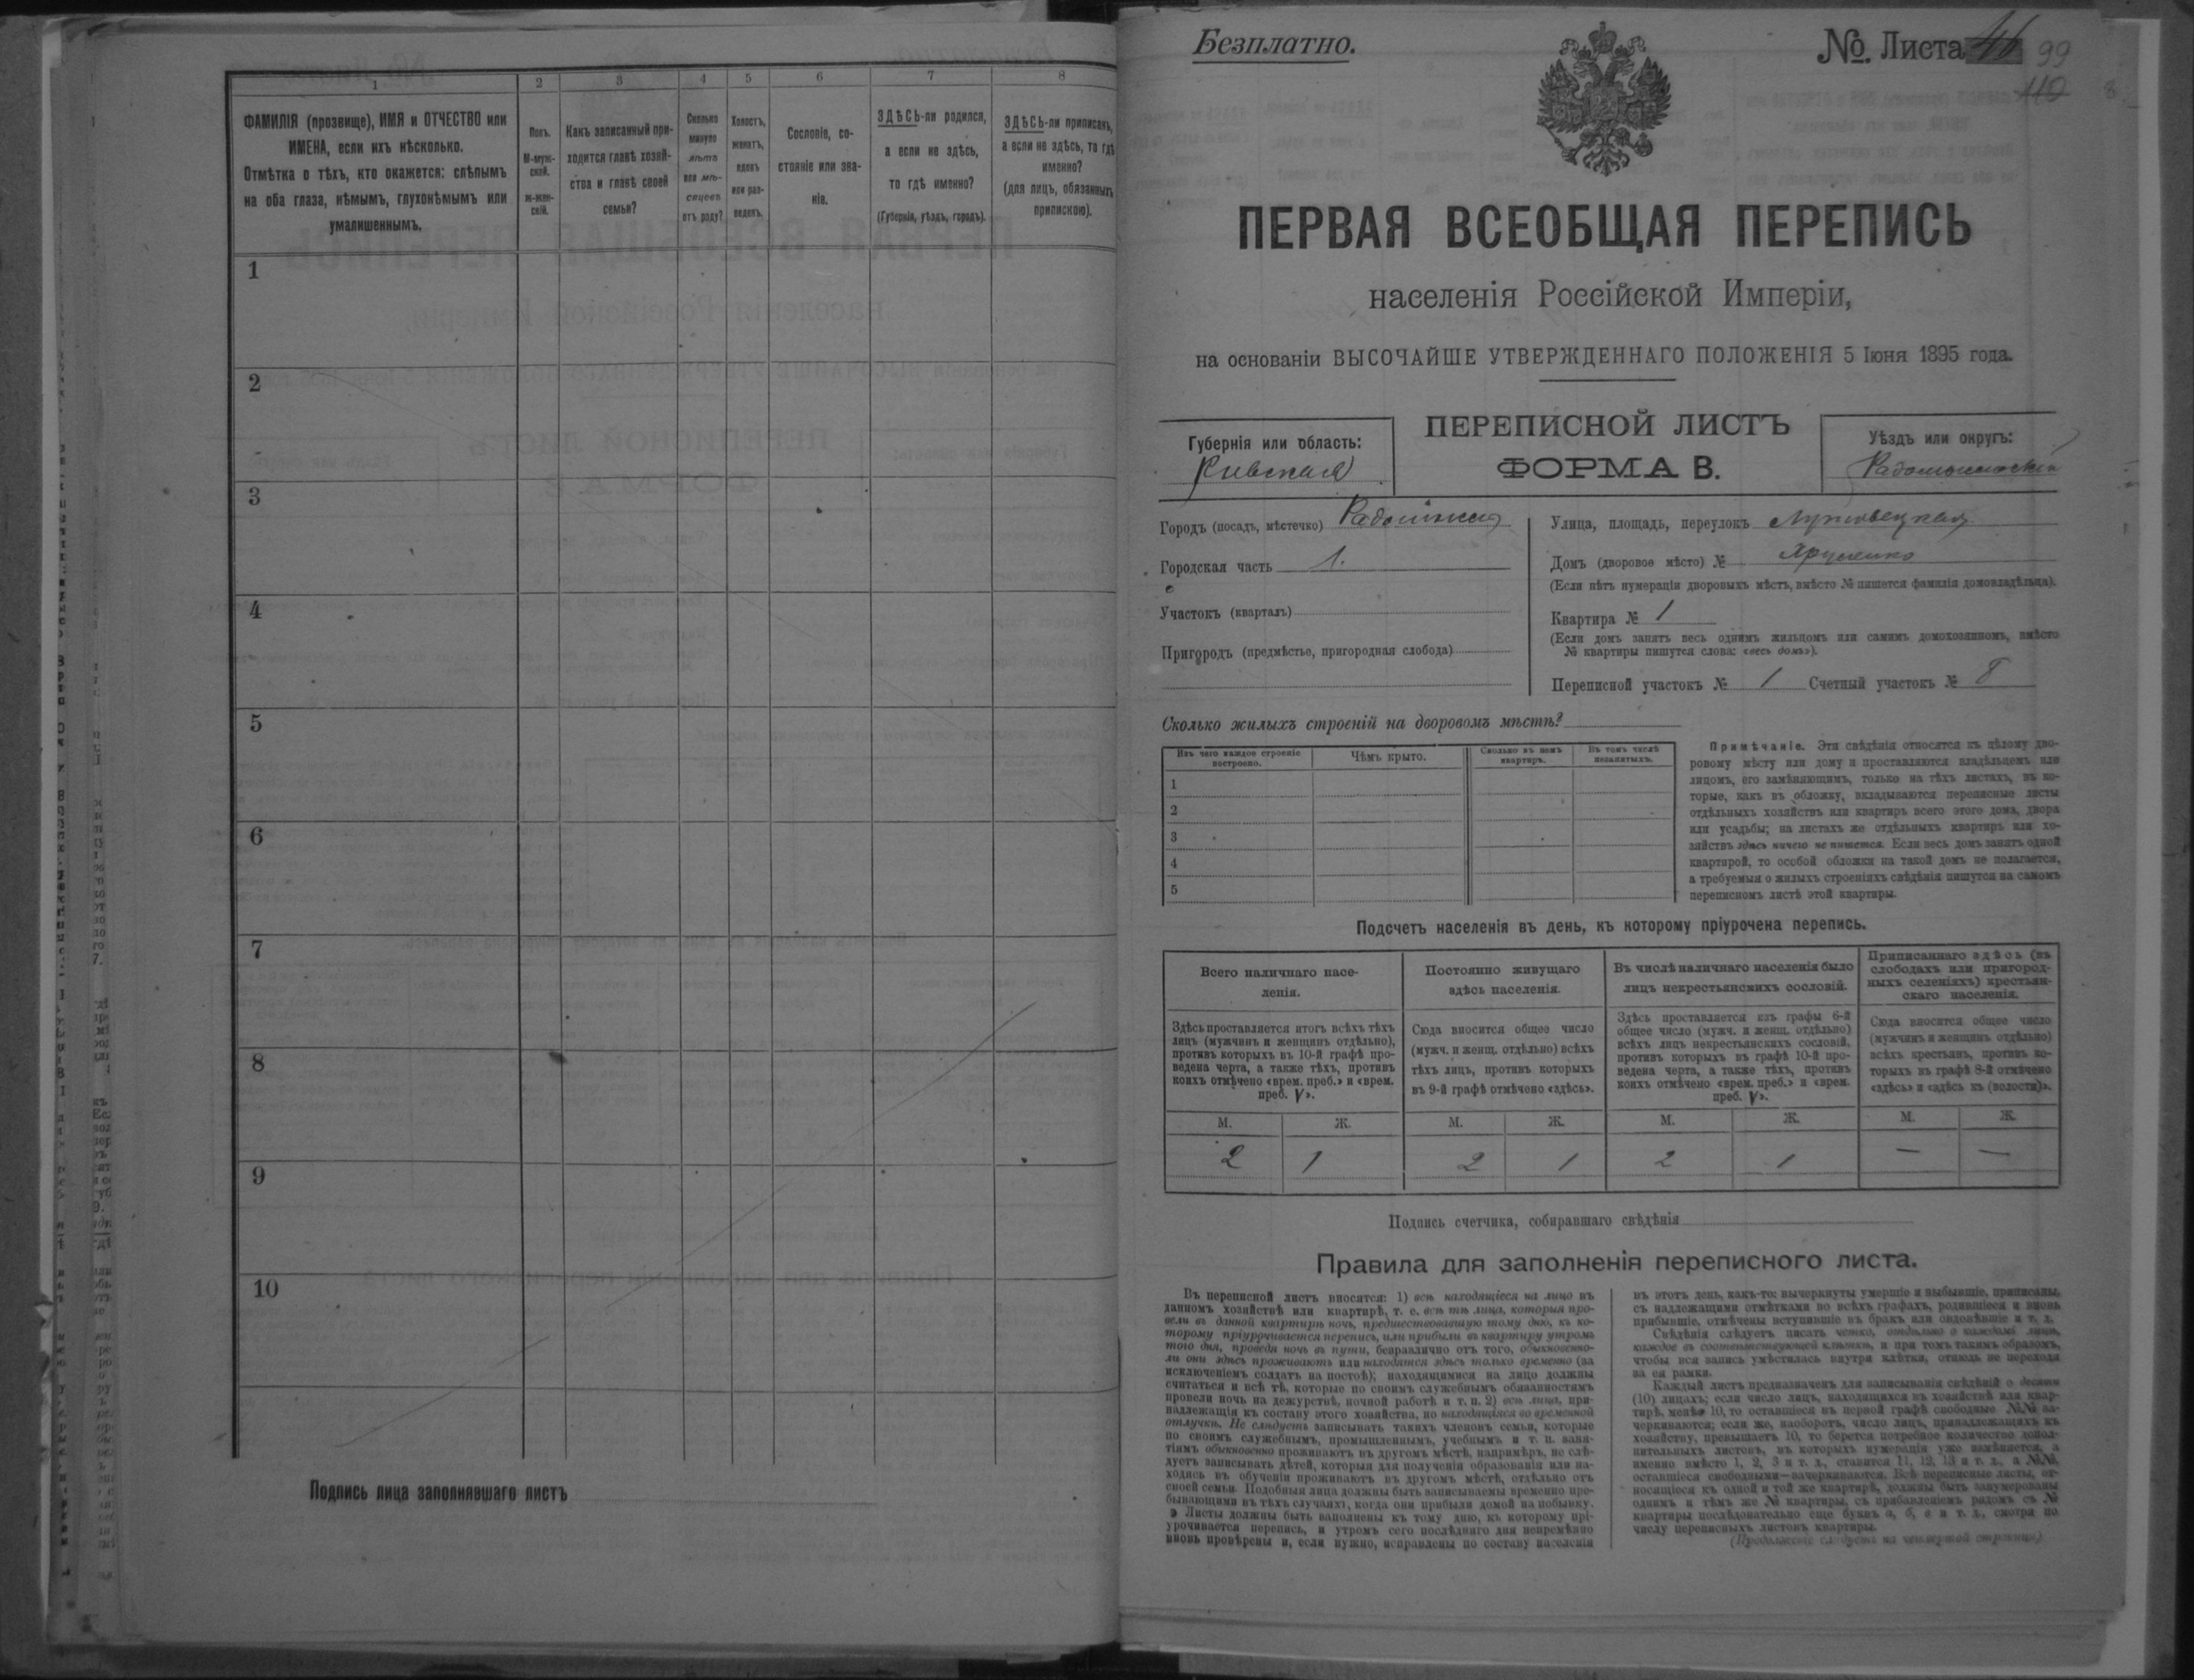 1 2 3 4 5 6 7 8
ФАМИЛІЯ (прозвище), ИМЯ и ОТЧЕСТВО или
ИМЕНА, если ихъ нѣсколько.
Отмѣтка о тѣхъ, кто окажется: слѣпымъ
на оба глаза, нѣмымъ, глухонѣмымъ или
умалишеннымъ.
Полъ.
М-муж-
ской.
ж-жен-
скій.
Какъ записанный при-
ходится главѣ хозяй-
ства и главѣ своей
семьи?
Сколько
минуло
лѣтъ
или мѣ-
сяцевъ
отъ роду?
Холостъ,
женатъ,
вдовъ
или раз-
веденъ.
Сословіе, со-
стояніе или зва-
ніе.
ЗДѢСЬ-ли родился,
а если не здѣсь,
то гдѣ именно?
(Губернія, уѣздъ, городъ).
ЗДѢСЬ-ли приписанъ,
а если не здѣсь, то гдѣ
именно?
(для лицъ, обязанныхъ
припискою).
1
2
3
4
5
6
7
8
9
10
Подпись лица заполнявшаго листъ
Безплатно.
№ Листа 99
110
ПЕРВАЯ ВСЕОБЩАЯ ПЕРЕПИСЬ
населенія Россійской Имперіи,
на основаніи ВЫСОЧАЙШЕ УТВЕРЖДЕННАГО ПОЛОЖЕНІЯ 5 Іюня 1895 года.
Губернія или область:
Кіевская
ПЕРЕПИСНОЙ ЛИСТЪ
ФОРМА В.
Уѣздъ или округъ:
Радомысльскій
Городъ (посадъ, мѣстечко)
Городская часть 1.
Участокъ (кварталъ)
Пригородъ (предмѣстье, пригородная слобода)
Улица, площадь, переулокъ
Домъ (дворовое мѣсто) №
(Если нѣтъ нумераціи дворовыхъ мѣстъ, вмѣсто № пишется фамилія домовладѣльца).
Квартира № 1
(Если домъ занятъ весь однимъ жильцомъ или самимъ домохозяиномъ, вмѣсто
№ квартиры пишутся слова: «весь домъ»).
Переписной участокъ № 1 Счетный участокъ № 8
Сколько жилыхъ строеній на дворовомъ мѣстѣ?
Изъ чего каждое строеніе
построено.
Чѣмъ крыто.
Сколько въ немъ
квартиръ.
Въ томъ числѣ
незанятыхъ.
1
2
3
4
5
Примѣчаніе. Эти свѣдѣнія относятся къ цѣлому дво-
ровому мѣсту или дому и проставляются владѣльцемъ или
лицомъ, его замѣняющимъ, только на тѣхъ листахъ, въ ко-
торые, какъ въ обложку, вкладываются переписные листы
отдѣльныхъ хозяйствъ или квартиръ всего этого дома, двора
или усадьбы; на листахъ же отдѣльныхъ квартиръ или хо-
зяйствъ здѣсь ничего не пишется. Если весь домъ занятъ одной
квартирой, то особой обложки на такой домъ не полагается,
а требуемыя о жилыхъ строеніяхъ свѣдѣнія пишутся на самомъ
переписномъ листѣ этой квартиры.
Подсчетъ населенія въ день, къ которому пріурочена перепись.
Всего наличнаго насе-
ленія.
Постоянно живущаго
здѣсь населенія.
Въ числѣ наличнаго населенія было
лицъ некрестьянскихъ сословій.
Приписаннаго здѣсь (въ
слободахъ или пригород-
ныхъ селеніяхъ) крестьян-
скаго населенія.
Здѣсь проставляется итогъ всѣхъ тѣхъ
лицъ (мужчинъ и женщинъ отдѣльно),
противъ которыхъ въ 10-й графѣ про-
ведена черта, а также тѣхъ, противъ
коихъ отмѣчено «врем. преб.» и «врем.
преб. V».
Сюда вносится общее число
(мужч. и женщ. отдѣльно) всѣхъ
тѣхъ лицъ, противъ которыхъ
въ 9-й графѣ отмѣчено «здѣсь».
Здѣсь проставляется изъ графы 6-й
общее число (мужч. и женщ. отдѣльно)
всѣхъ лицъ некрестьянскихъ сословій,
противъ которыхъ въ графѣ 10-й про-
ведена черта, а также тѣхъ, противъ
коихъ отмѣчено «врем. преб.» и «врем.
преб. V».
Сюда вносится общее число
(мужчинъ и женщинъ отдѣльно)
всѣхъ крестьянъ, противъ ко-
торыхъ въ графѣ 8-й отмѣчено
«здѣсь» и «здѣсь къ (волости)».
М. Ж. М. Ж. М. Ж. М. Ж.
2 1 2 1 2 1 — —
Подпись счетчика, собиравшаго свѣдѣнія
Правила для заполненія переписного листа.
Въ переписной листъ вносятся: 1) всѣ находящіеся на лицо въ
данномъ хозяйствѣ или квартирѣ, т. е. всѣ тѣ лица, которыя про-
вели въ данной квартирѣ ночь, предшествовавшую тому дню, къ ко-
торому пріурочивается перепись, или прибыли въ квартиру утромъ
того дня, проведя ночь въ пути, безразлично отъ того, обыкновенно-
ли они здѣсь проживаютъ или находятся здѣсь только временно (за
исключеніемъ солдатъ на постоѣ); находящимися на лицо должны
считаться и всѣ тѣ, которые по своимъ служебнымъ обязанностямъ
провели ночь на дежурствѣ, ночной работѣ и т. п. 2) всѣ лица, при-
надлежащія къ составу этого хозяйства, но находящіяся во временной
отлучкѣ. Не слѣдуетъ записывать такихъ членовъ семьи, которые
по своимъ служебнымъ, промышленнымъ, учебнымъ и т. п. заня-
тіямъ обыкновенно проживаютъ въ другомъ мѣстѣ, напримѣръ, не слѣ-
дуетъ записывать дѣтей, которыя для полученія образованія или на-
ходясь въ обученіи проживаютъ въ другомъ мѣстѣ, отдѣльно отъ
своей семьи. Подобныя лица должны быть записываемы временно пре-
бывающими въ тѣхъ случаяхъ, когда они прибыли домой на побывку.
Листы должны быть заполнены къ тому дню, къ которому прі-
урочивается перепись, и утромъ сего послѣдняго дня непремѣнно
вновь провѣрены и, если нужно, исправлены по составу населенія
въ этотъ день, какъ-то: вычеркнуты умершіе и выбывшіе, приписаны,
съ надлежащими отмѣтками во всѣхъ графахъ, родившіеся и вновь
прибывшіе, отмѣчены вступившіе въ бракъ или овдовѣвшіе и т. д.
Свѣдѣнія слѣдуетъ писать четко, отдѣльно о каждомъ лицѣ,
каждое въ соотвѣтствующей клѣткѣ, и при томъ такимъ образомъ,
чтобы вся запись умѣстилась внутри клѣтки, отнюдь не переходя
за ея рамки.
Каждый листъ предназначенъ для записыванія свѣдѣній о десяти
(10) лицахъ; если число лицъ, находящихся въ хозяйствѣ или квар-
тирѣ, менѣе 10, то оставшіеся въ первой графѣ свободные №№ за-
черкиваются; если же, наоборотъ, число лицъ, принадлежащихъ къ
хозяйству, превышаетъ 10, то берется потребное количество допол-
нительныхъ листовъ, въ которыхъ нумерація уже измѣняется, а
именно вмѣсто 1, 2, 3 и т. д., ставится 11, 12, 13 и т. д., а №№,
оставшіеся свободными—зачеркиваются. Всѣ переписные листы, от-
носящіеся къ одной и той же квартирѣ, должны быть занумерованы
однимъ и тѣмъ же № квартиры, съ прибавленіемъ рядомъ съ №
квартиры послѣдовательно еще буквъ а, б, в и т. д., смотря по
числу переписныхъ листовъ квартиры.
(Продолженіе слѣдуетъ на четвертой страницѣ)